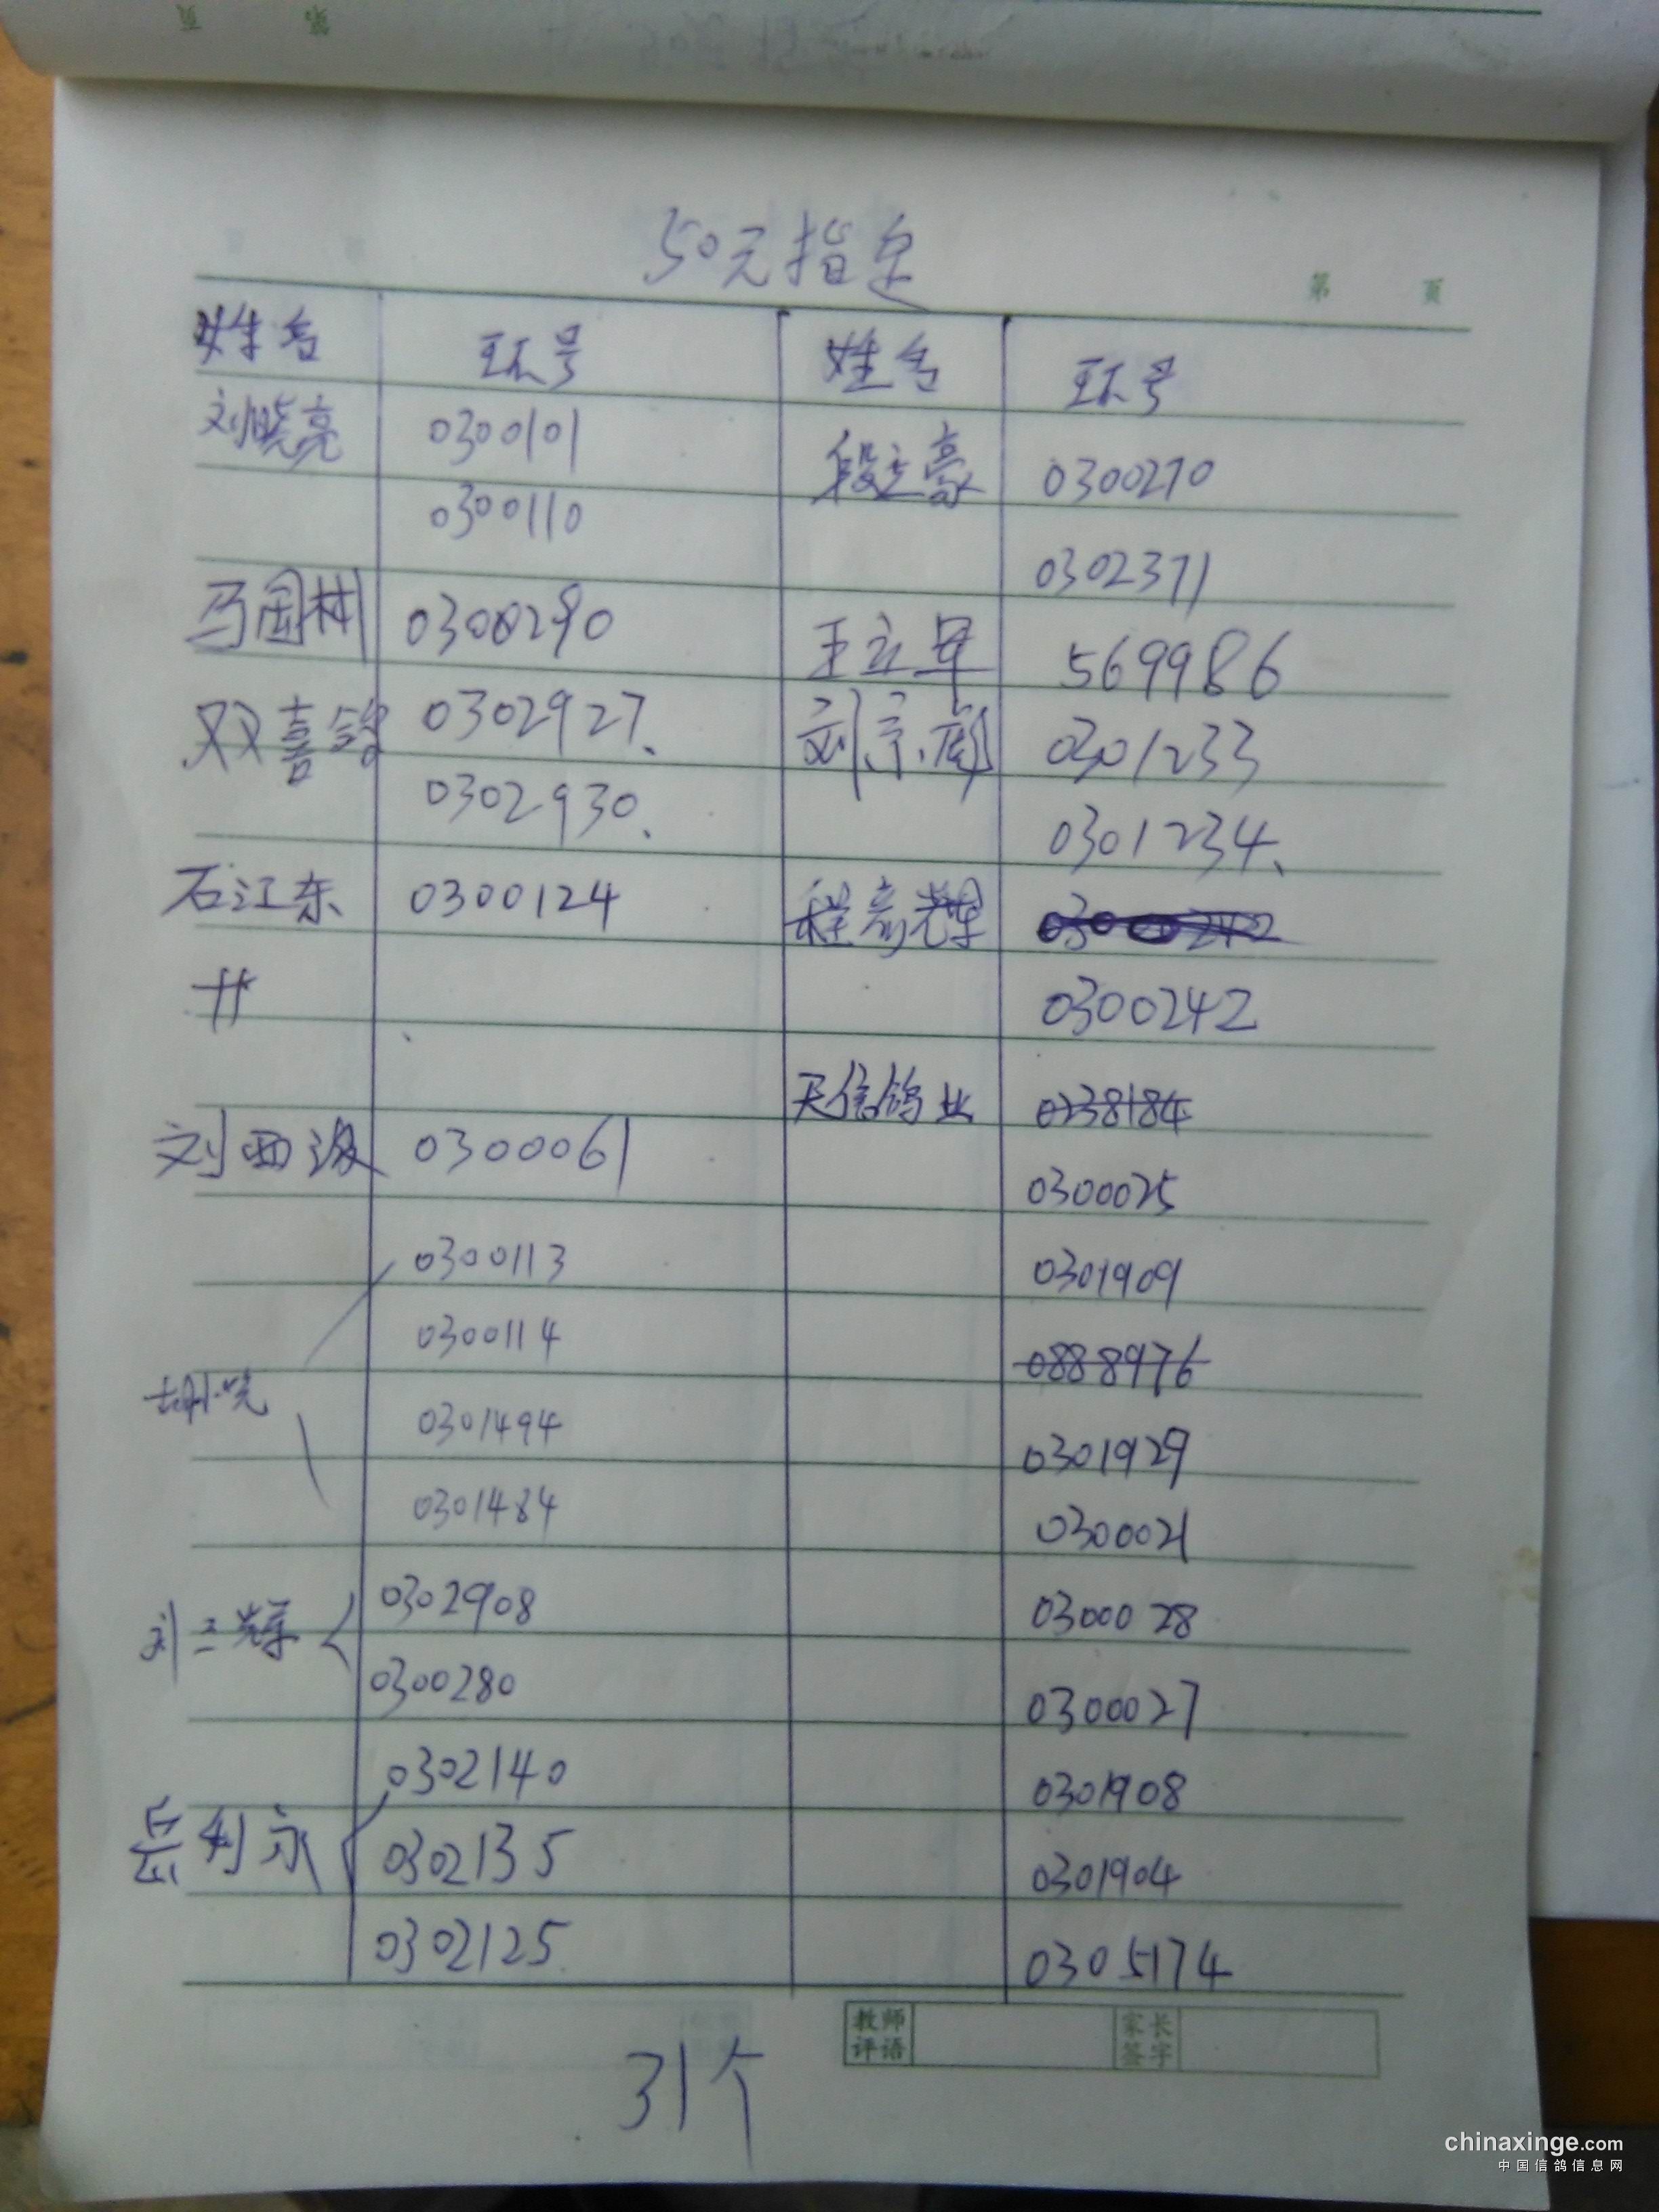 50元指定
第 页
姓名 环号 姓名 环号
刘晓亮 0300101 段志豪 0300270
0300110 0302371
马国林 0300290 王立军 569986
双喜鸽 0302927、 刘京彪 0301233
0302930、 0301234、
石江东 0300124 程高辉
0300242
天信鸽业 0238184
刘西波 0300061 0300025
0300113 0301909
0300114 0888976
0301494 0301929
胡小晓 0301484 0300021
刘三辉 0302908 0300028
0300280 0300027
0302140 0301908
岳利永 0302135 0301904
0302125 0305174
教师评语 家长签字
31个
chinaxinge.com
中国信鸽信息网